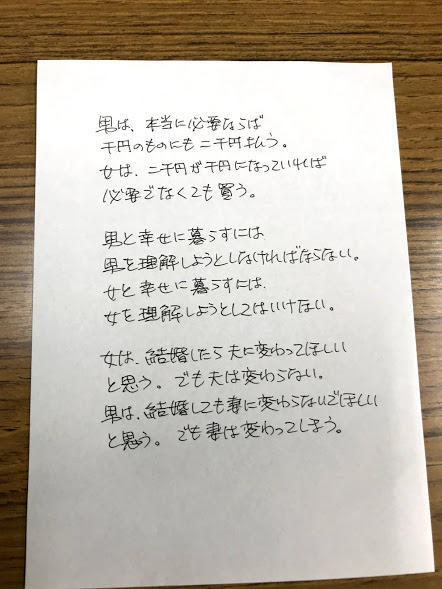 男は、本当に必要ならば
千円のものにも二千円払う。
女は、二千円が千円になっていれば
必要でなくても買う。
男と幸せに暮らすには
男を理解しようとしなければならない。
女と幸せに暮らすには、
女を理解しようとしてはいけない。
女は、結婚したら夫に変わってほしい
と思う。でも夫は変わらない。
男は、結婚しても妻に変わらないでほしい
と思う。でも妻は変わってしまう。